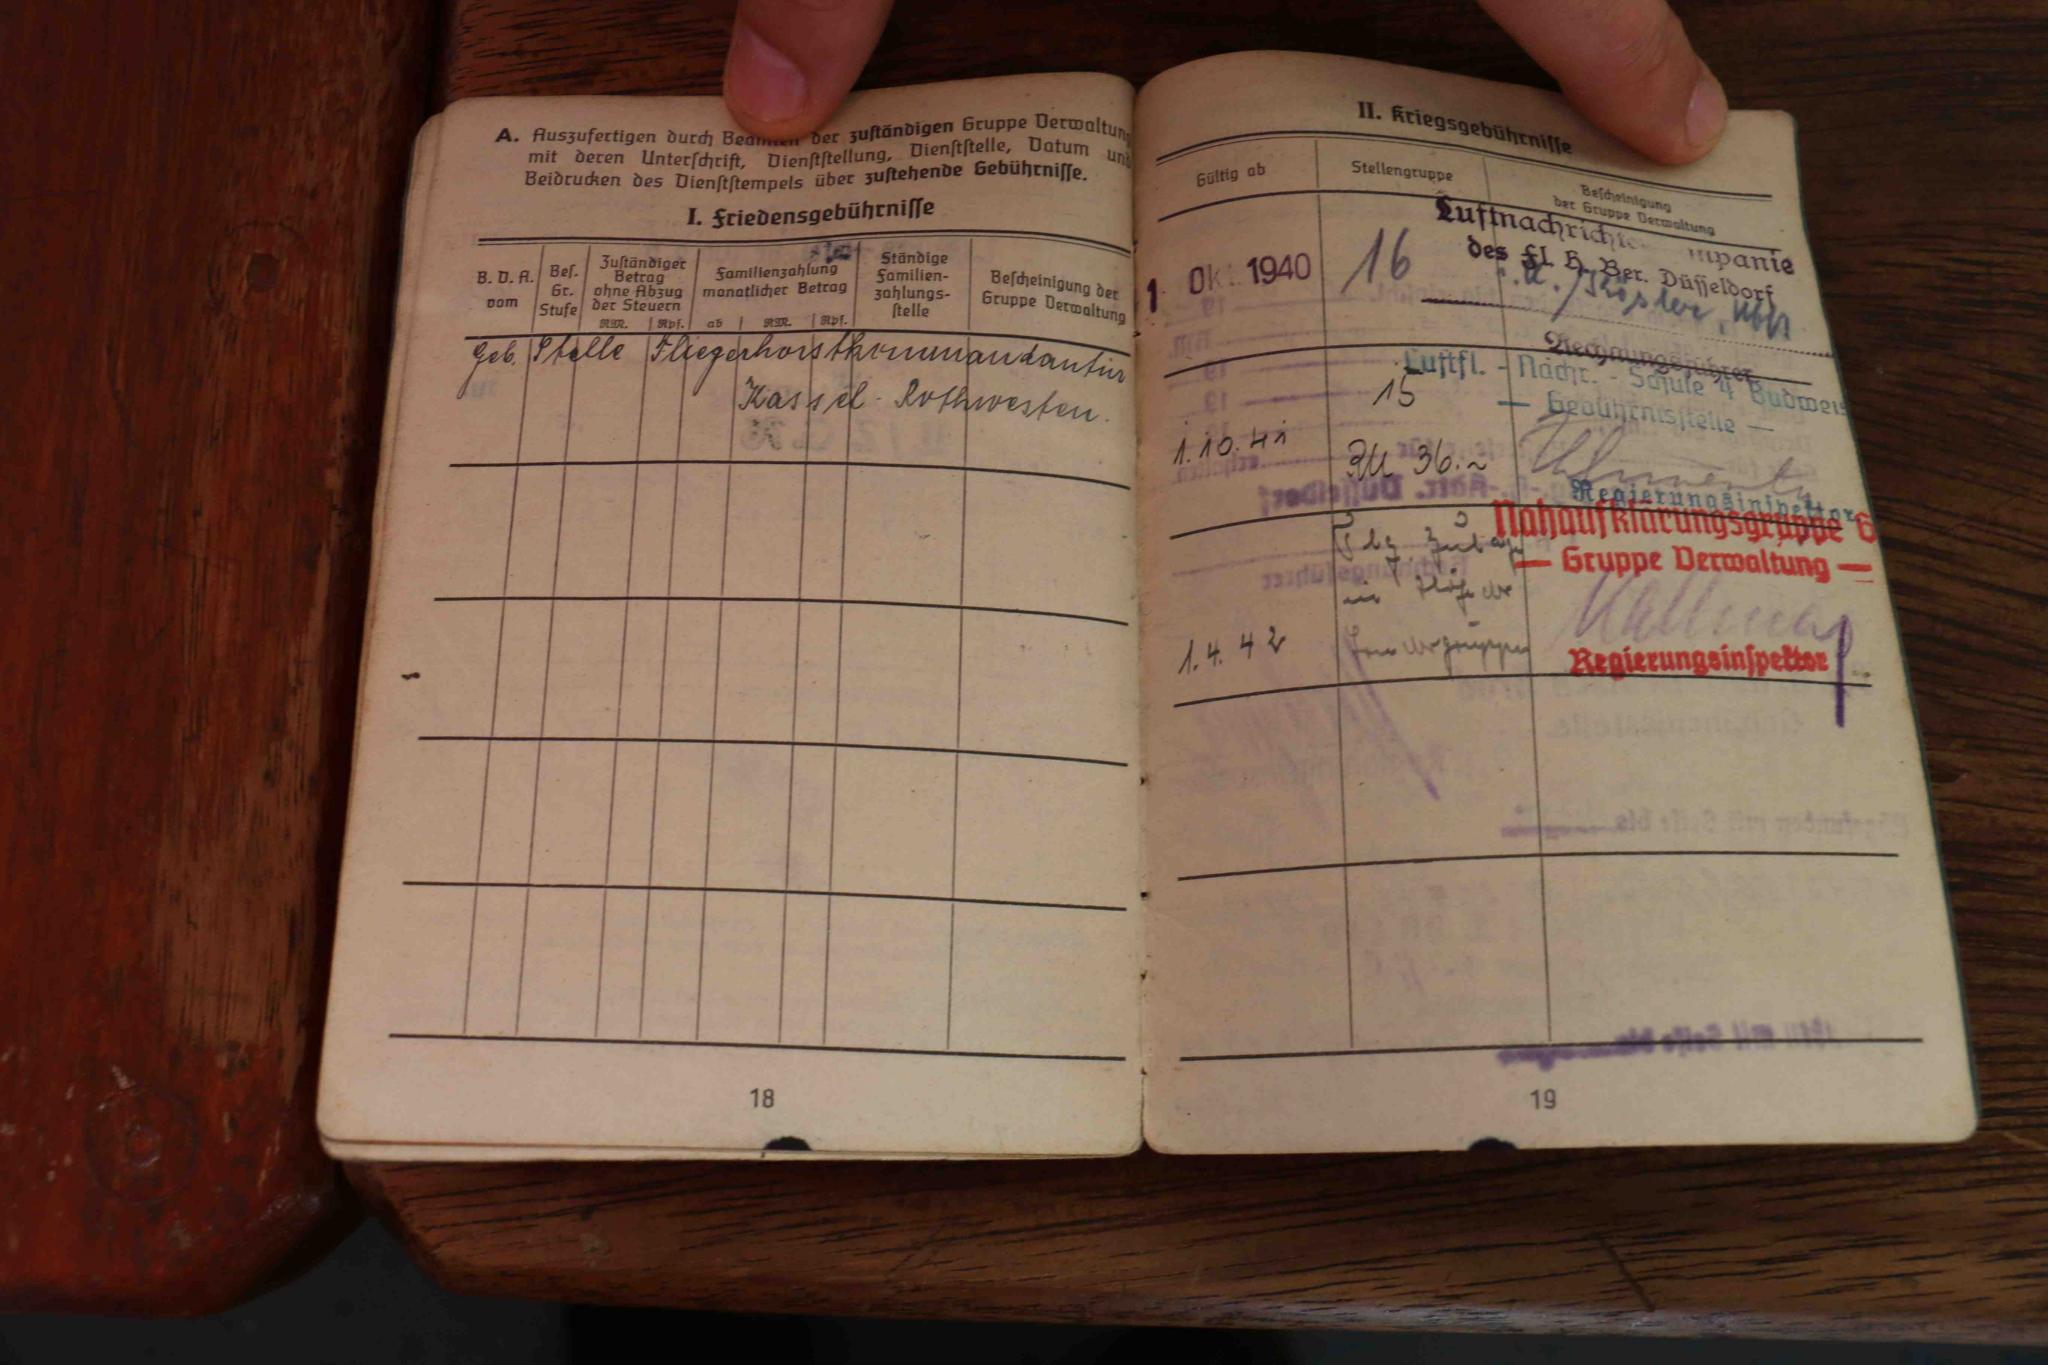 A. Auszufertigen durch Beamten der zuständigen Gruppe Verwaltung
mit deren Unterschrift, Dienststellung, Dienststelle, Datum und
Beidrucken des Dienststempels über zustehende Gebührnisse.
I. Friedensgebührnisse
B. D. A.
vom
Bes.
Gr.
Stufe
Zuständiger
Betrag
ohne Abzug
der Steuern
RM. Rpf.
Familienzahlung
monatlicher Betrag
ab RM. Rpf.
Ständige
Familien-
zahlungs-
stelle
Bescheinigung der
Gruppe Verwaltung
Geb. Stelle Fliegerhorstkommandantur
Kassel-Rothwesten.
18
II. Kriegsgebührnisse
Gültig ab
Stellengruppe
Bescheinigung
der Gruppe Verwaltung
1. Okt. 1940
16
des Fl. H. Ber. Düsseldorf
Rechnungsführer
Luftfl. - Nachr. - Schule 4 Budweis
— Gebührnisstelle —
15
1.10.41
RM 36.-
Regierungsinspektor
Nahaufklärungsgruppe 6
— Gruppe Verwaltung —
1.4.42
Regierungsinspektor
19